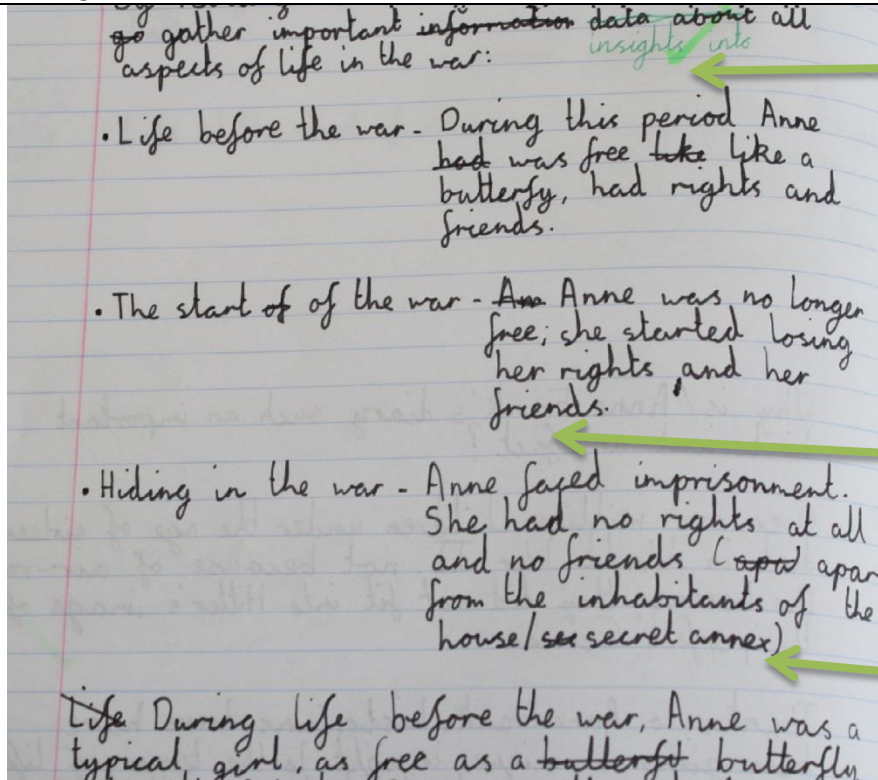 go gather important information data about all
insights into
aspects of life in the war:
• Life before the war - During this period Anne
had was free like like a
butterfy, had rights and
friends.
• The start of of the war - An Anne was no longer
free; she started losing
her rights, and her
friends.
• Hiding in the war - Anne faced imprisonment.
She had no rights at all
and no friends (apa apar
from the inhabitants of the
house/sec secret annex)
Life During life before the war, Anne was a
typical girl, as free as a butterft butterfly